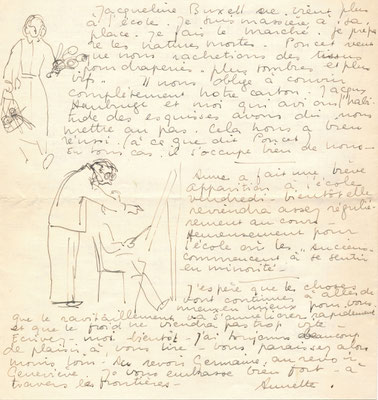 Jacqueline Buxell ne vient plus
à l'école. Je suis massière à sa
place. Je fais le marché. Je prépa
re les natures mortes. Poncet veut
que nous rachetions des tissus
pour draperies plus sombres et plus
vifs. Il nous oblige à couvrir
complètement notre carton. Jacques
et moi qui avions l'habi
tude des esquisses avons dû nous
mettre au pas. Cela nous a bien
réussi (à ce que dit Poncet)
En tous cas il s'occupe bien de nous-
Anne a fait une brève
apparition à l'école
vendredi - bientôt elle
reviendra assez réguliè
rement au cours -
Heureusement pour
l'école où les
commencent à se sentir
en minorité -
J'espère que les choses
vont continuer à aller de
mieux en mieux pour vous.
que le ravitaillement va s'améliorer rapidement
et que le froid ne viendra pas trop vite -
Ecrivez-moi bientôt - J'ai toujours beaucoup
de plaisir à vous lire - vous paraissez alors
moins loin. Au revoir Germaine, au revoir
Geneviève. Je vous embrasse bien fort à
travers les frontières -
Annette.